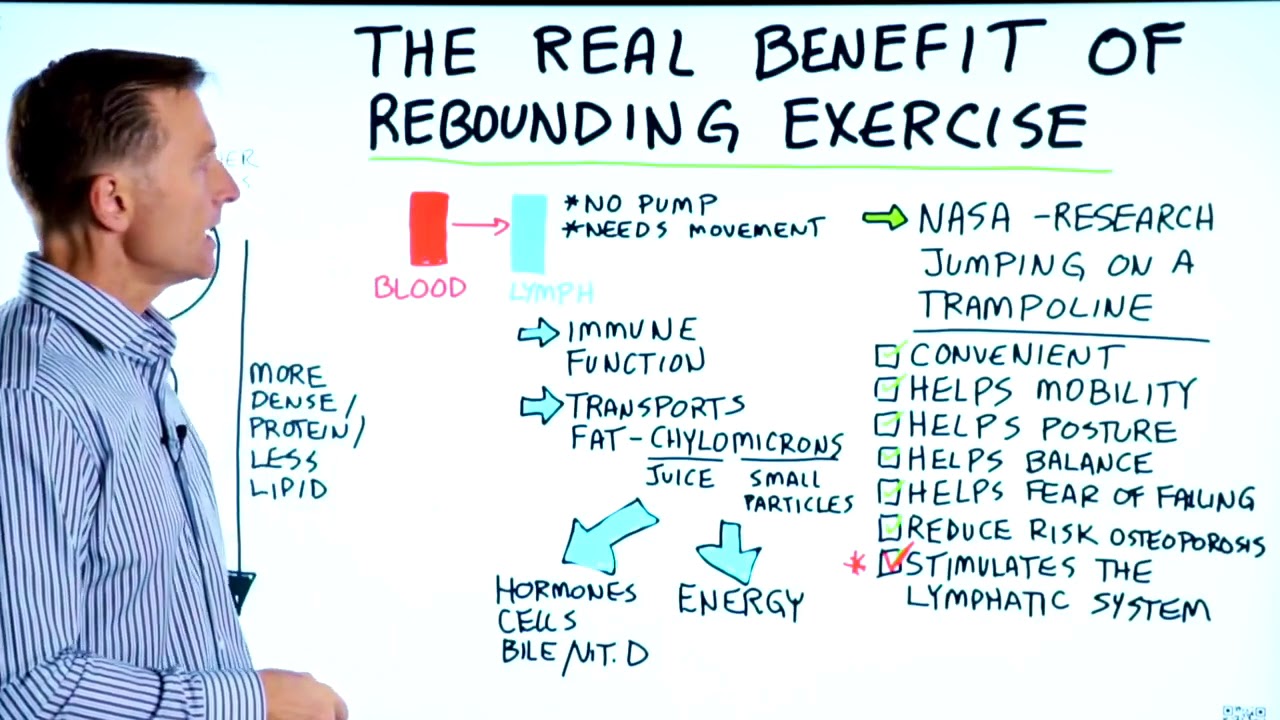 THE REAL BENEFIT OF
REBOUNDING EXERCISE
BLOOD
LYMPH
*NO PUMP
*NEEDS MOVEMENT
IMMUNE
FUNCTION
TRANSPORTS
FAT - CHYLOMICRONS
JUICE
SMALL
PARTICLES
HORMONES
CELLS
BILE/VIT. D
ENERGY
MORE
DENSE/
PROTEIN/
LESS
LIPID
NASA - RESEARCH
JUMPING ON A
TRAMPOLINE
CONVENIENT
HELPS MOBILITY
HELPS POSTURE
HELPS BALANCE
HELPS FEAR OF FALLING
REDUCE RISK OSTEOPOROSIS
* STIMULATES THE
LYMPHATIC SYSTEM